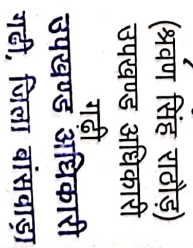 (श्रवण सिंह राठौड़)
उपखण्ड अधिकारी
गढी
उपखण्ड अधिकारी
गढी, जिला बांसवाड़ा